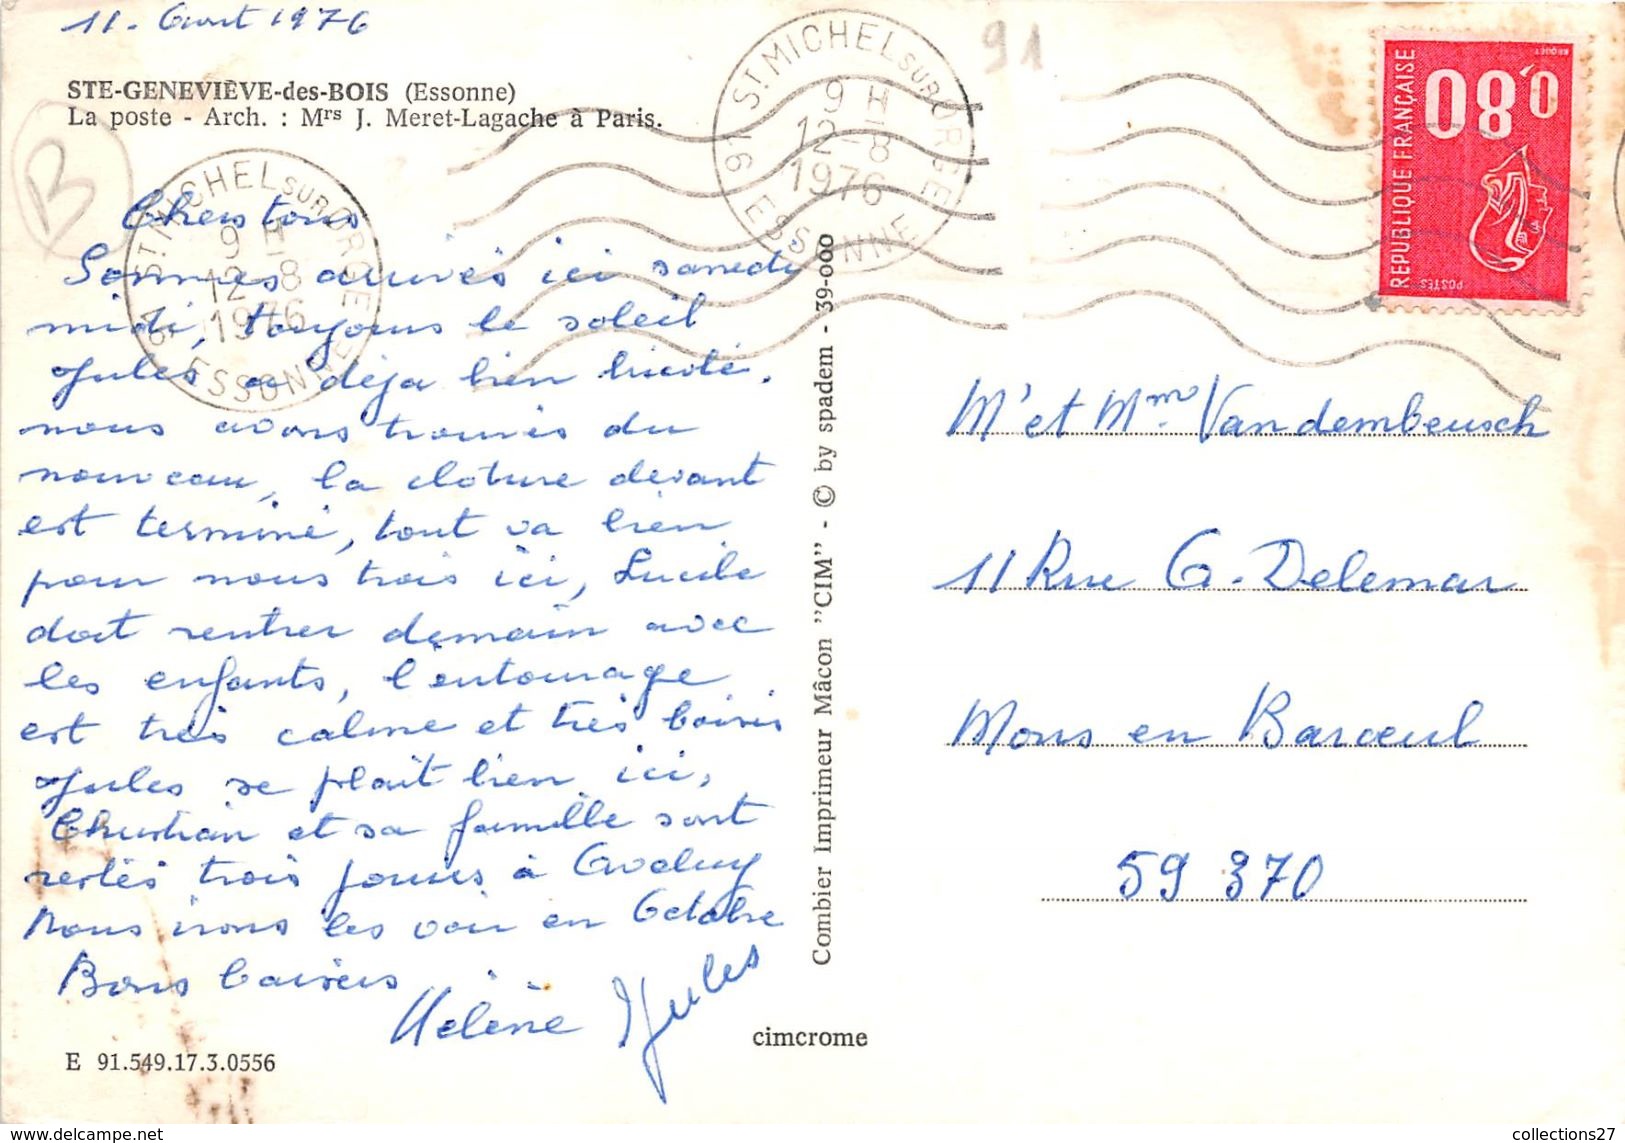 11. Aout 1976
91
STE-GENEVIÈVE-des-BOIS (Essonne)
La poste - Arch. : Mrs J. Meret-Lagache à Paris.
B
ST MICHEL SUR ORGE
9 H
12-8
1976
91 ESSONNE
ST MICHEL SUR ORGE
9 H
12-8
1976
91 ESSONNE
REPUBLIQUE FRANÇAISE
0,80
POSTES
Chers tous
Sommes arrivés ici samedi
midi, toujours le soleil
Jules a déja bien bricolé,
nous avons trouvés du
nouveau, la cloture devant
est terminé, tout va bien
pour nous trois ici, Lucile
doit rentrer demain avec
les enfants, l'entourage
est très calme et très boisés
Jules se plait bien ici,
Christian et sa famille sont
restés trois jours à Aveluy
Nous irons les voir en Octobre
Bons baisers
Hélène Jules
M' et Mme Vandembeusch
11 Rue G. Delemar
Mons en Baroeul
59 370
Combier Imprimeur Mâcon "CIM" - © by spadem - 39-000
cimcrome
E 91.549.17.3.0556
collections27